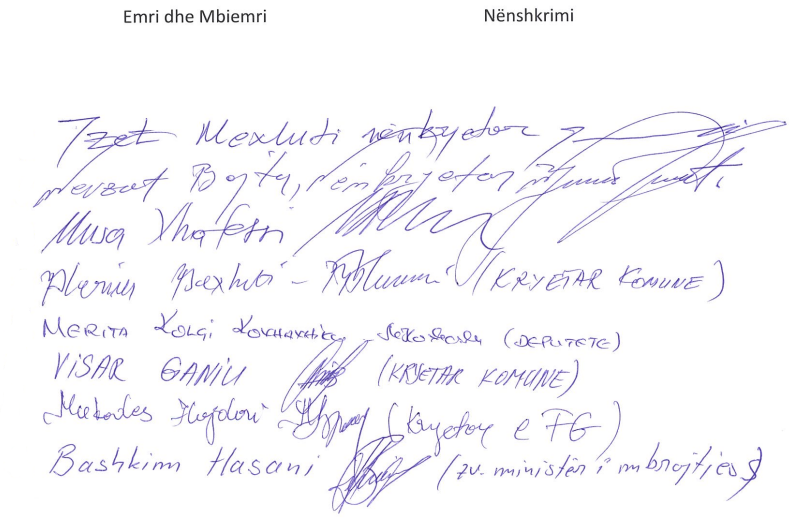 Emri dhe Mbiemri Nënshkrimi
Izet Mexhiti nënkryetar
Nevzat Bejta, nënkryetar
Musa Xhaferri
Mexhiti - (KRYETAR KOMUNE)
MERITA KOLÇI (DEPUTETE)
VISAR GANIU (KRYETAR KOMUNE)
Mukades (Kryetar e FG)
Bashkim Hasani (zv. ministër i mbrojtjes)